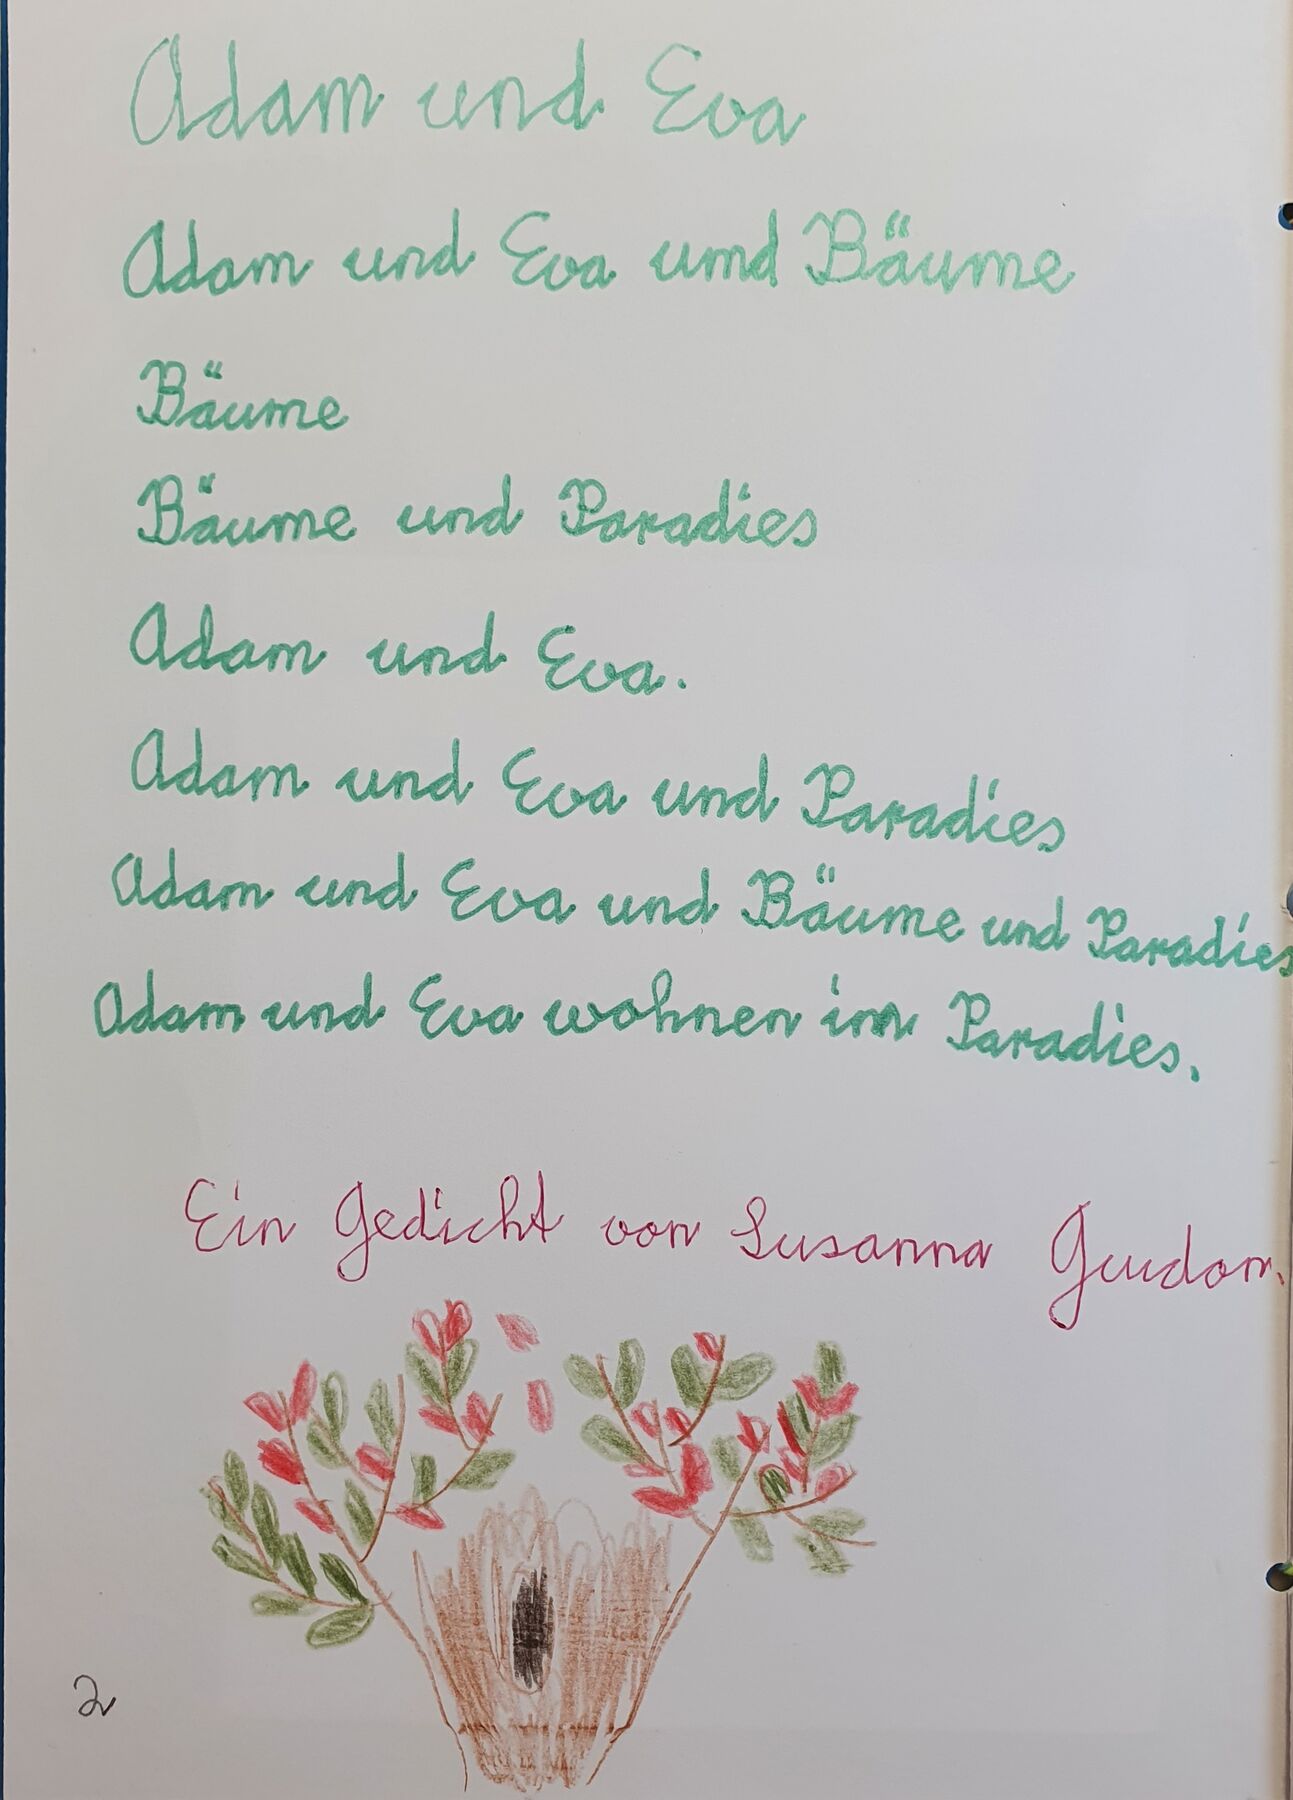 Adam und Eva
Adam und Eva und Bäume
Bäume
Bäume und Paradies
Adam und Eva.
Adam und Eva und Paradies
Adam und Eva und Bäume und Paradies
Adam und Eva wohnen im Paradies.
Ein Gedicht von Susanna
2